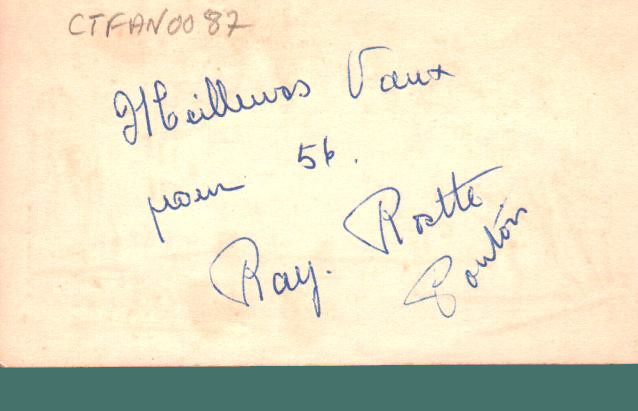 CTFAN0087
Meilleurs Vœux
pour 56.
Ray. Rostte